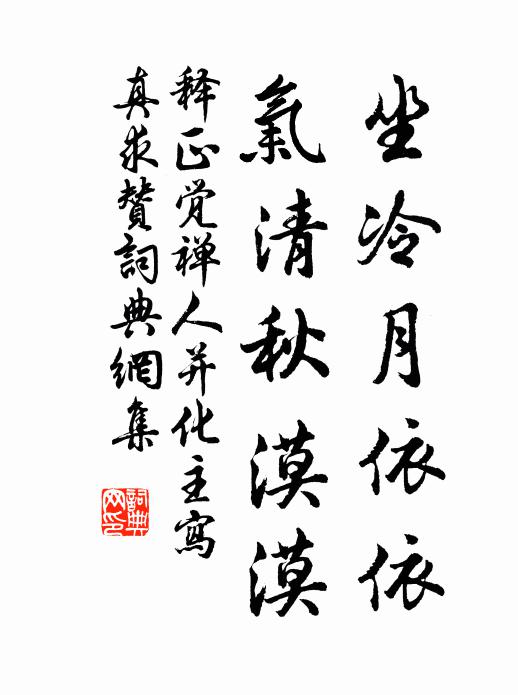 坐冷月依依
氣清秋漠漠
释正觉禅人并化主寫
真求贊詞典網集
詞典网印